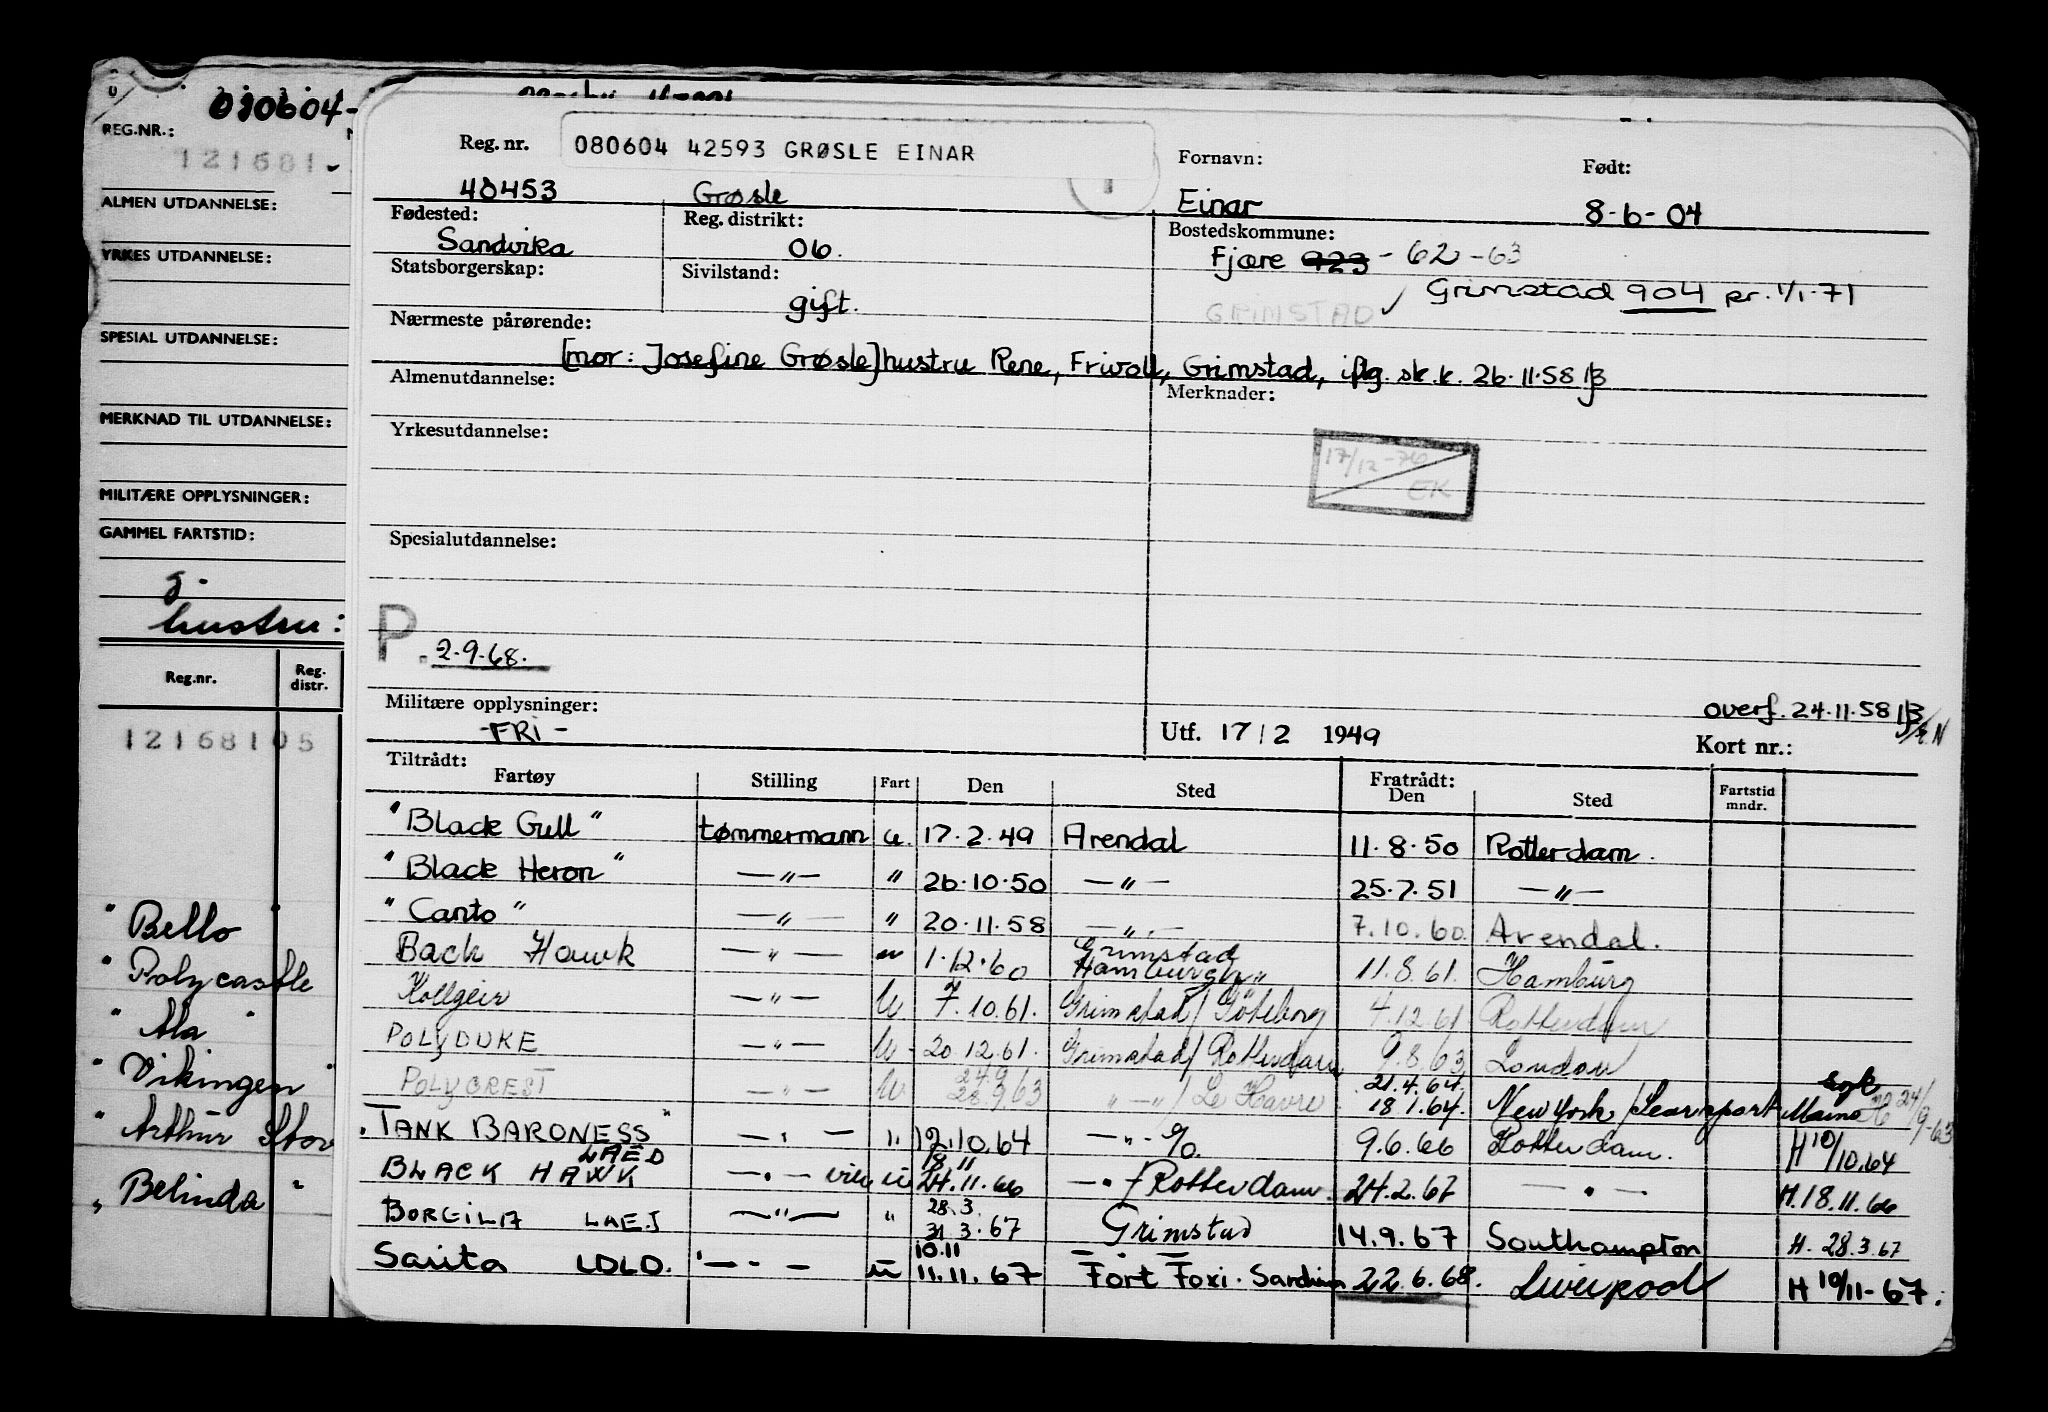 080604-
REG.NR.:
121681-
ALMEN UTDANNELSE:
YRKES UTDANNELSE:
SPESIAL UTDANNELSE:
MERKNAD TIL UTDANNELSE:
MILITÆRE OPPLYSNINGER:
GAMMEL FARTSTID:
hustru:
Reg.nr. Reg. distr.
12168105
"Bello"
"Polycastle
"Ala"
"Vikingen"
"Arthur Stov
"Belinda"
Reg. nr. 080604 42593 GRØSLE EINAR Fornavn: Født:
40453 Grøsle Einar 8-6-04
Fødested: Reg. distrikt: Bostedskommune:
Sandvika 06. Fjære 923 - 62-63
Statsborgerskap: Sivilstand: Grimstad 904 pr. 1/1-71
gift. GRIMSTAD ✓
Nærmeste pårørende:
[mor: Josefine Grøsle] hustru Rene, Frivoll, Grimstad, iflg. sk.k. 26.11.58 B
Almenutdannelse: Merknader:
Yrkesutdannelse:
17/12-76 EK
Spesialutdannelse:
P. 2.9.68.
Militære opplysninger: overf. 24.11.58 B
-FRI- Utf. 17/2 1949 Kort nr.:
Tiltrådt: Fratrådt:
Fartøy Stilling Fart Den Sted Den Sted Fartstid mndr.
"Black Gull" tømmermann u. 17.2.49 Arendal 11.8.50 Rotterdam.
"Black Heron" —"— " 26.10.50 —"— 25.7.51 —"—
"Canto" —"— " 20.11.58 —"— 7.10.60 Arendal.
Back Hawk —"— " 1.12.60 Grimstad Hamburg 11.8.61. Hamburg
Kollgeir —"— U 7.10.61. Grimstad/Göteborg 4.12.61 Rotterdam
POLYDUKE —"— U 20.12.61. Grimstad/Rotterdam 9.8.63 London
POLYCREST —"— U 24.9 28.9.63 —"—/Le Havre 21.4.64. 18.1.64. New York/Searsport Maine syk H 24/9-63
"TANK BARONESS" —"— " 12.10.64 —"— % 9.6.66 Rotterdam. H 10/10.64
BLACK HAWK LAED —"— u 18.11 24.11.66 —"—/Rotterdam. 24.2.67 —"— H.18.11.66
BORGILA LAEJ —"— " 28.3. 31.3.67 Grimstad 14.9.67 Southampton H. 28.3.67
Sarita LDLO. —"— u 10.11 11.11.67 Port Foxi. Sardinia 22.6.68. Liverpool H 10/11-67.